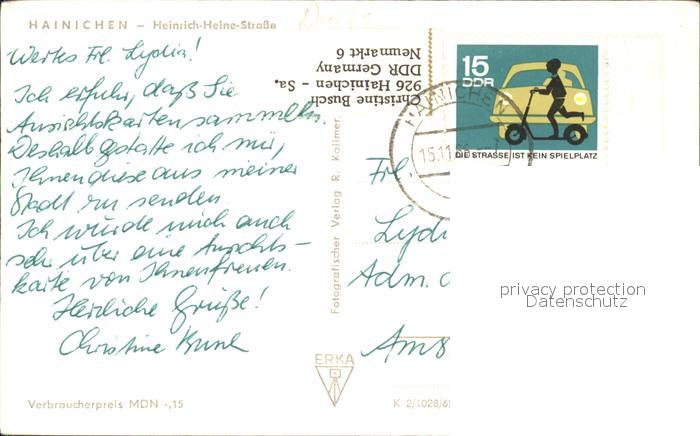 HAINICHEN – Heinrich-Heine-Straße
Wertes Frl. Lydia!
Ich erfuhr, daß Sie
Ansichtskarten sammeln.
Deshalb gestatte ich mir,
Ihnen diese aus meiner
Stadt zu senden.
Ich würde mich auch
sehr über eine Ansichts-
karte von Ihnen freuen.
Herzliche Grüße!
Christine Busch
Verbraucherpreis MDN -,15
Christine Busch
926 Hainichen - Sa.
DDR Germany
Neumarkt 6
Fotografischer Verlag R. Kallmer
ERKA
K 2/1028/6
15
DDR
DIE STRASSE IST KEIN SPIELPLATZ
HAINICHEN
15.11.66
Frl.
Lydi
Adm. d
Ams
privacy protection
Datenschutz